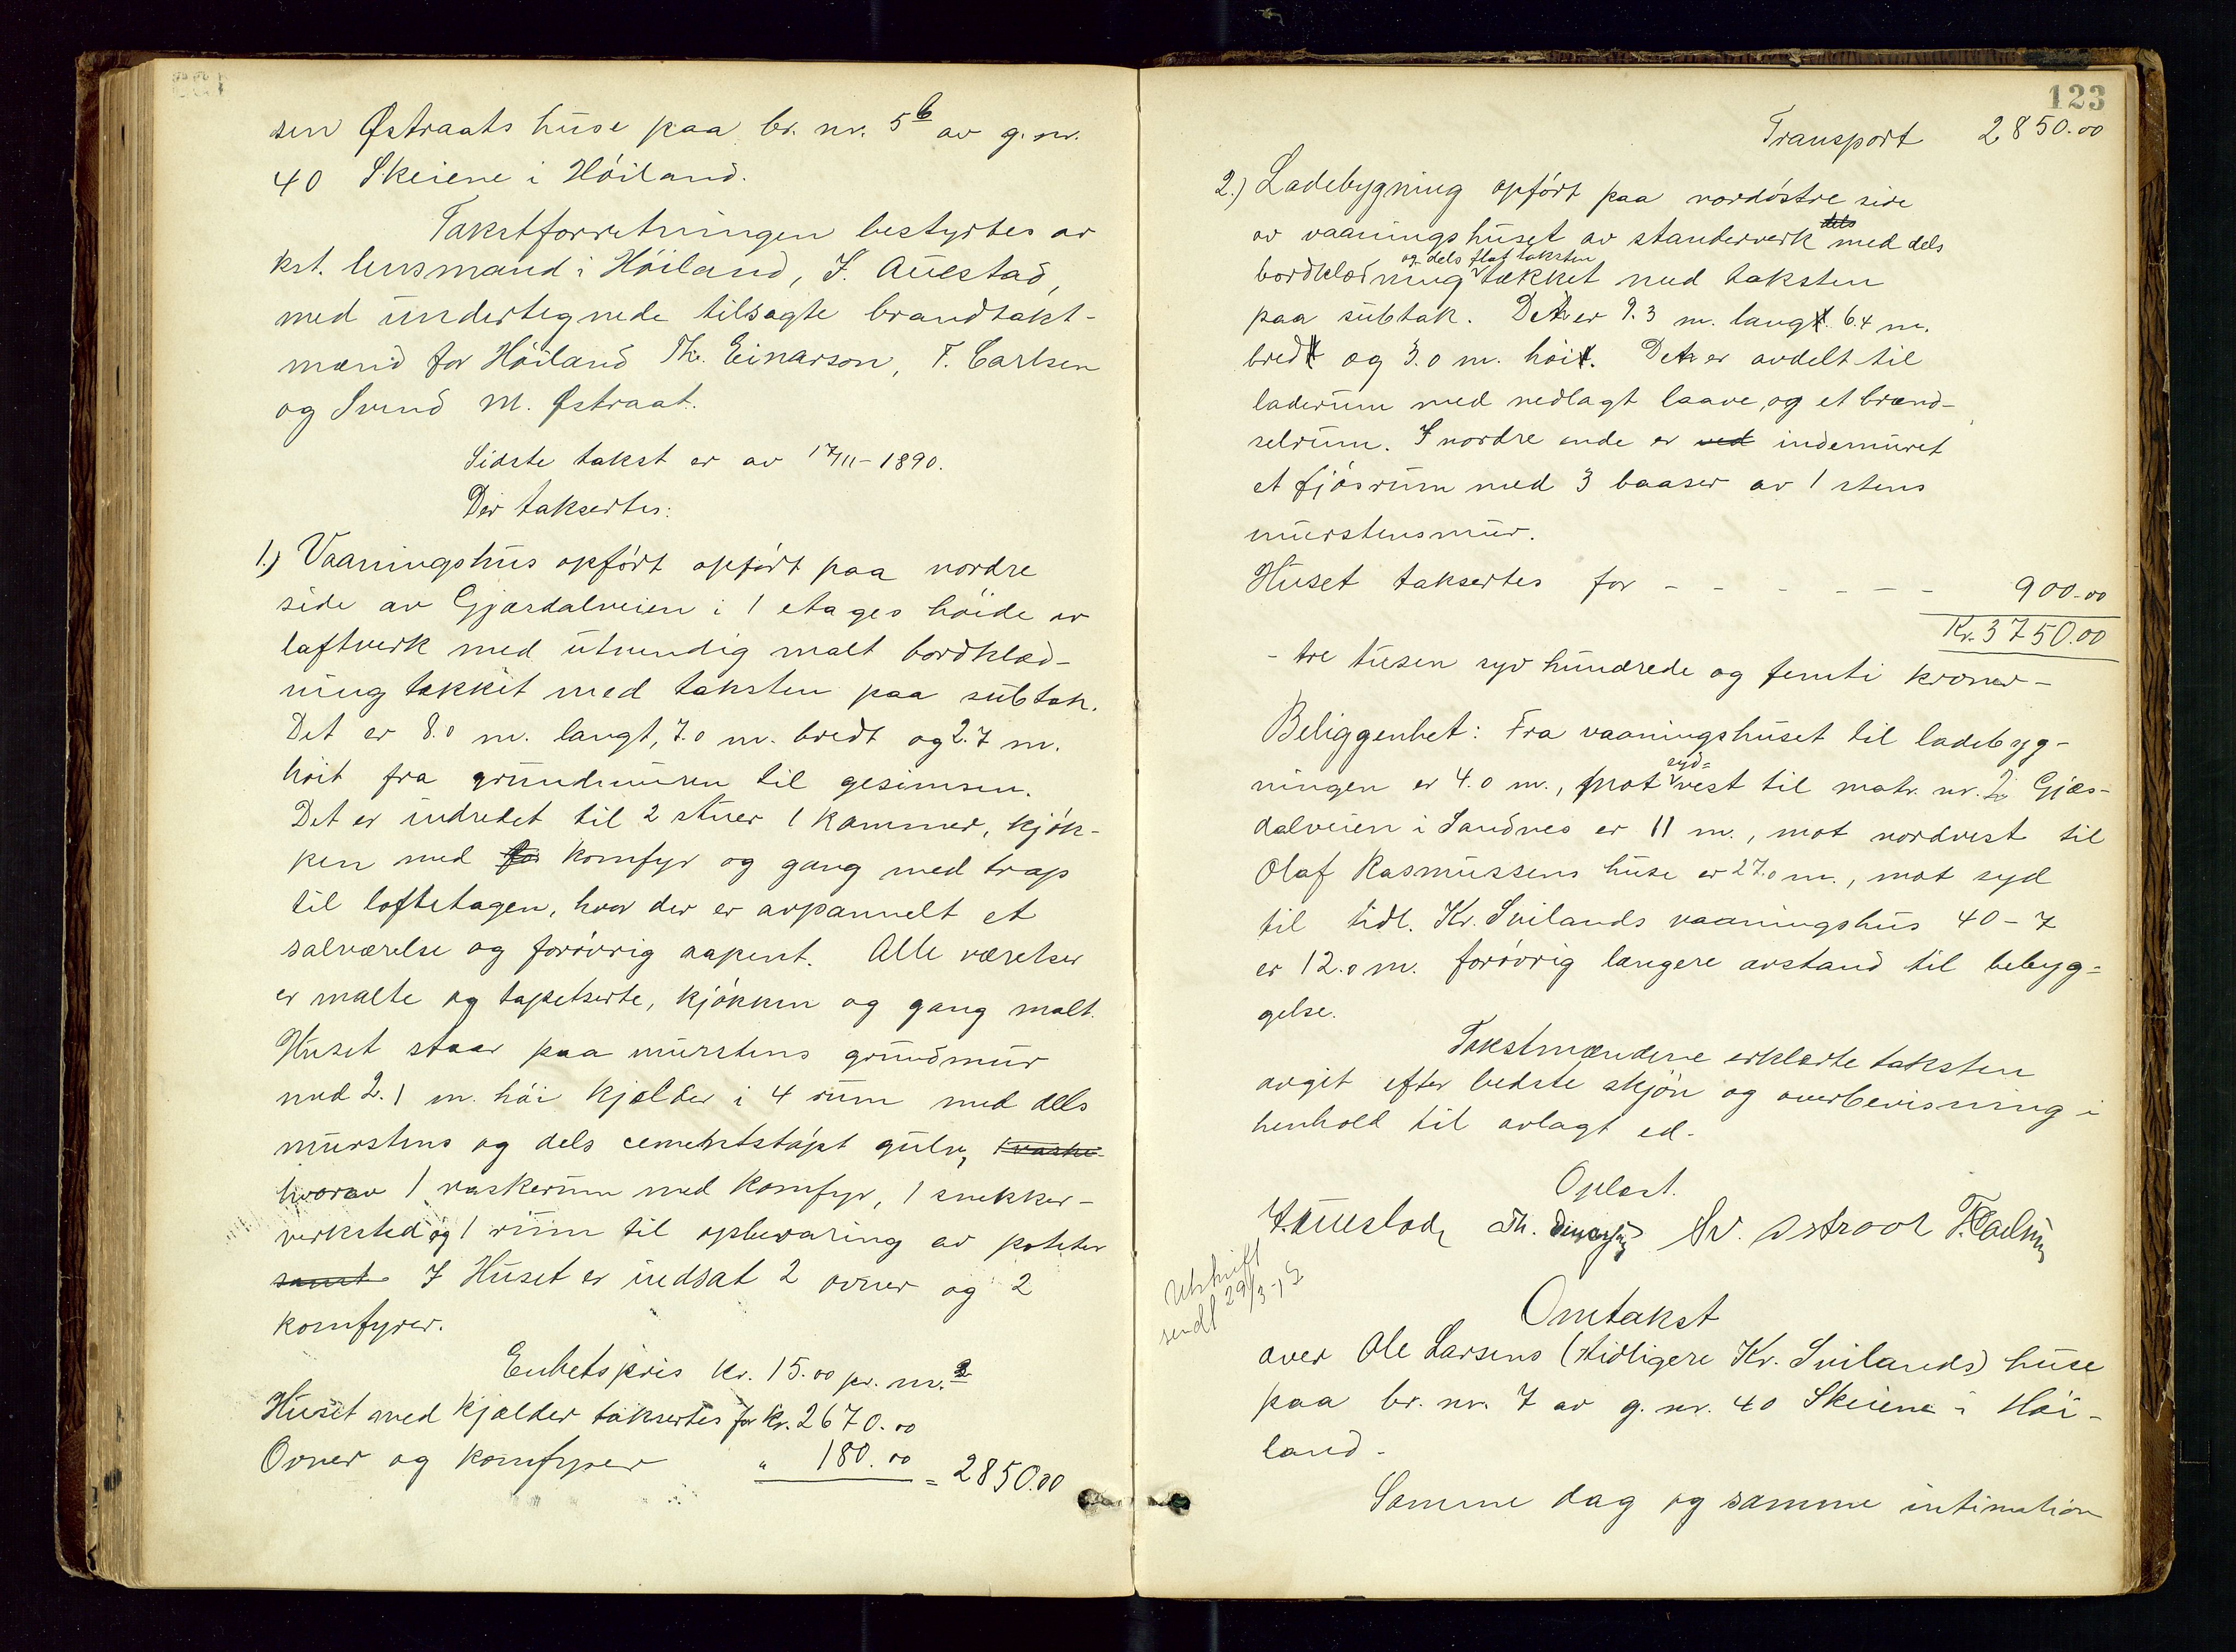 sen Østraats huse paa br. nr. 5b av g. nr.
40 Skeiene i Høiland.
Takstforretningen bestyrtes av
kst. lensmand i Høiland, T. Auestad,
med undertegnede tilsagte brandtakst-
mænd for Høiland Th. Einarson, T. Carlsen
og Svend M. Østraat.
Sidste takst er av 17/11-1890.
Der taksertes:
1.) Vaaningshus opført opført paa nordre
side av Gjæsdalveien i 1 etages høide av
laftverk med utvendig malt bordklæd-
ning tækket med taksten paa subtak.
Det er 8.0 m. langt, 7.0 m. bredt og 2.7 m.
høit fra grundmuren til gesimsen.
Det er indredet til 2 stuer 1 kammer, kjøk-
ken med fo komfyr og gang med trap
til loftetagen, hvor der er avpannelt et
salværelse og forøvrig aapent. Alle værelser
er malte og tapetserte, kjøkken og gang malt.
Huset staar paa murstens grundmur
med 2.1 m. høi kjælder i 4 rum med dels
murstens og dels cementstøpt gulv, 1 vaske-
hvorav 1 vaskerum med komfyr, 1 snekker-
verksted og 1 rum til opbevaring av poteter
samt I Huset er indsat 2 ovner og 2
komfyrer.
Enhetspris kr. 15.00 pr. m.2
Huset med kjælder taksertes for kr. 2670.00
Ovner og komfyrer " 180.00 = 2850.00
123
Transport 2850.00
2.) Ladebygning opført paa nordøstre side
av vaaningshuset av standerverk dels med dels
bordklædning og dels flat taksten tækket med taksten
paa subtak. Den er 9.3 m. lang. 6.4 m.
bred og 3.0 m. høi. Den er avdelt til
laderum med nedlagt laave, og et brænd-
selrum. I nordre ende er ved indemuret
et fjøsrum med 3 baaser av 1 stens
murstensmur.
Huset taksertes for - - - - - - 900.00
Kr. 3750.00
- tre tusen syv hundrede og femti kroner -
Beliggenhet: Fra vaaningshuset til ladebyg-
ningen er 4.0 m., mot syd-vest til matr. nr. 2 Gjæs-
dalveien i Sandnes er 11 m., mot nordvest til
Olaf Rasmussens huse er 27.0 m., mot syd
til tidl. Kr. Svilands vaaningshus 40-7
er 12.0 m. forøvrig længere avstand til bebyg-
gelse.
Takstmændene erklærte taksten
avgit efter bedste skjøn og overbevisning i
henhold til avlagt ed.
Oplæst.
T. Auestad Th. Einarson Sv. Østraat T. Carlsen
Utskrift
sendt 29/3-15
Omtakst
over Ole Larsens (tidligere Kr. Svilands) huse
paa br. nr. 7 av g. nr. 40 Skeiene i Høi-
land.
Samme dag og samme intimation